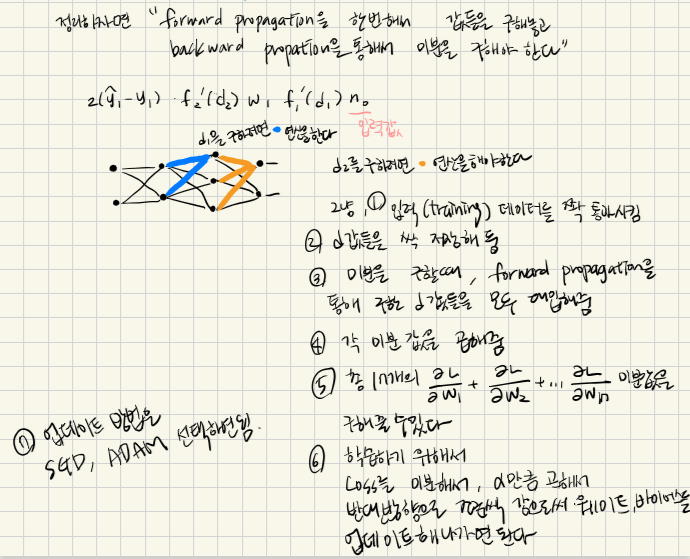 정리하자면 "forward propagation을 한번해서 값들을 구해놓고
backward propation을 통해서 미분을 구해야 한다"
2(ŷ₁-y₁) · f₂'(d₂) w₁ f₁'(d₁) n₀
입력값
d₁을 구하려면 • 연산을한다
d₂를 구하려면 • 연산을해야한다
그냥, ① 입력(training) 데이터를 쫙 통과시킴
② d값들을 싹 저장해 둠
③ 미분을 구할때, forward propagation을
통해 구한 d값들을 모두 대입해줌
④ 각 미분 값을 곱해줌
⑤ 총 17개의 ∂L/∂w₁ + ∂L/∂w₂ + ... ∂L/∂w₁₇ 미분값을
구해줄 수 있다
⑥ 학습하기 위해서
Loss를 미분해서, α만큼 곱해서
반대방향으로 조금씩 감으로써 웨이트, 바이어스를
업데이트 해나가면 된다
⑦ 업데이트 방법은
SGD, ADAM 선택하면됨.